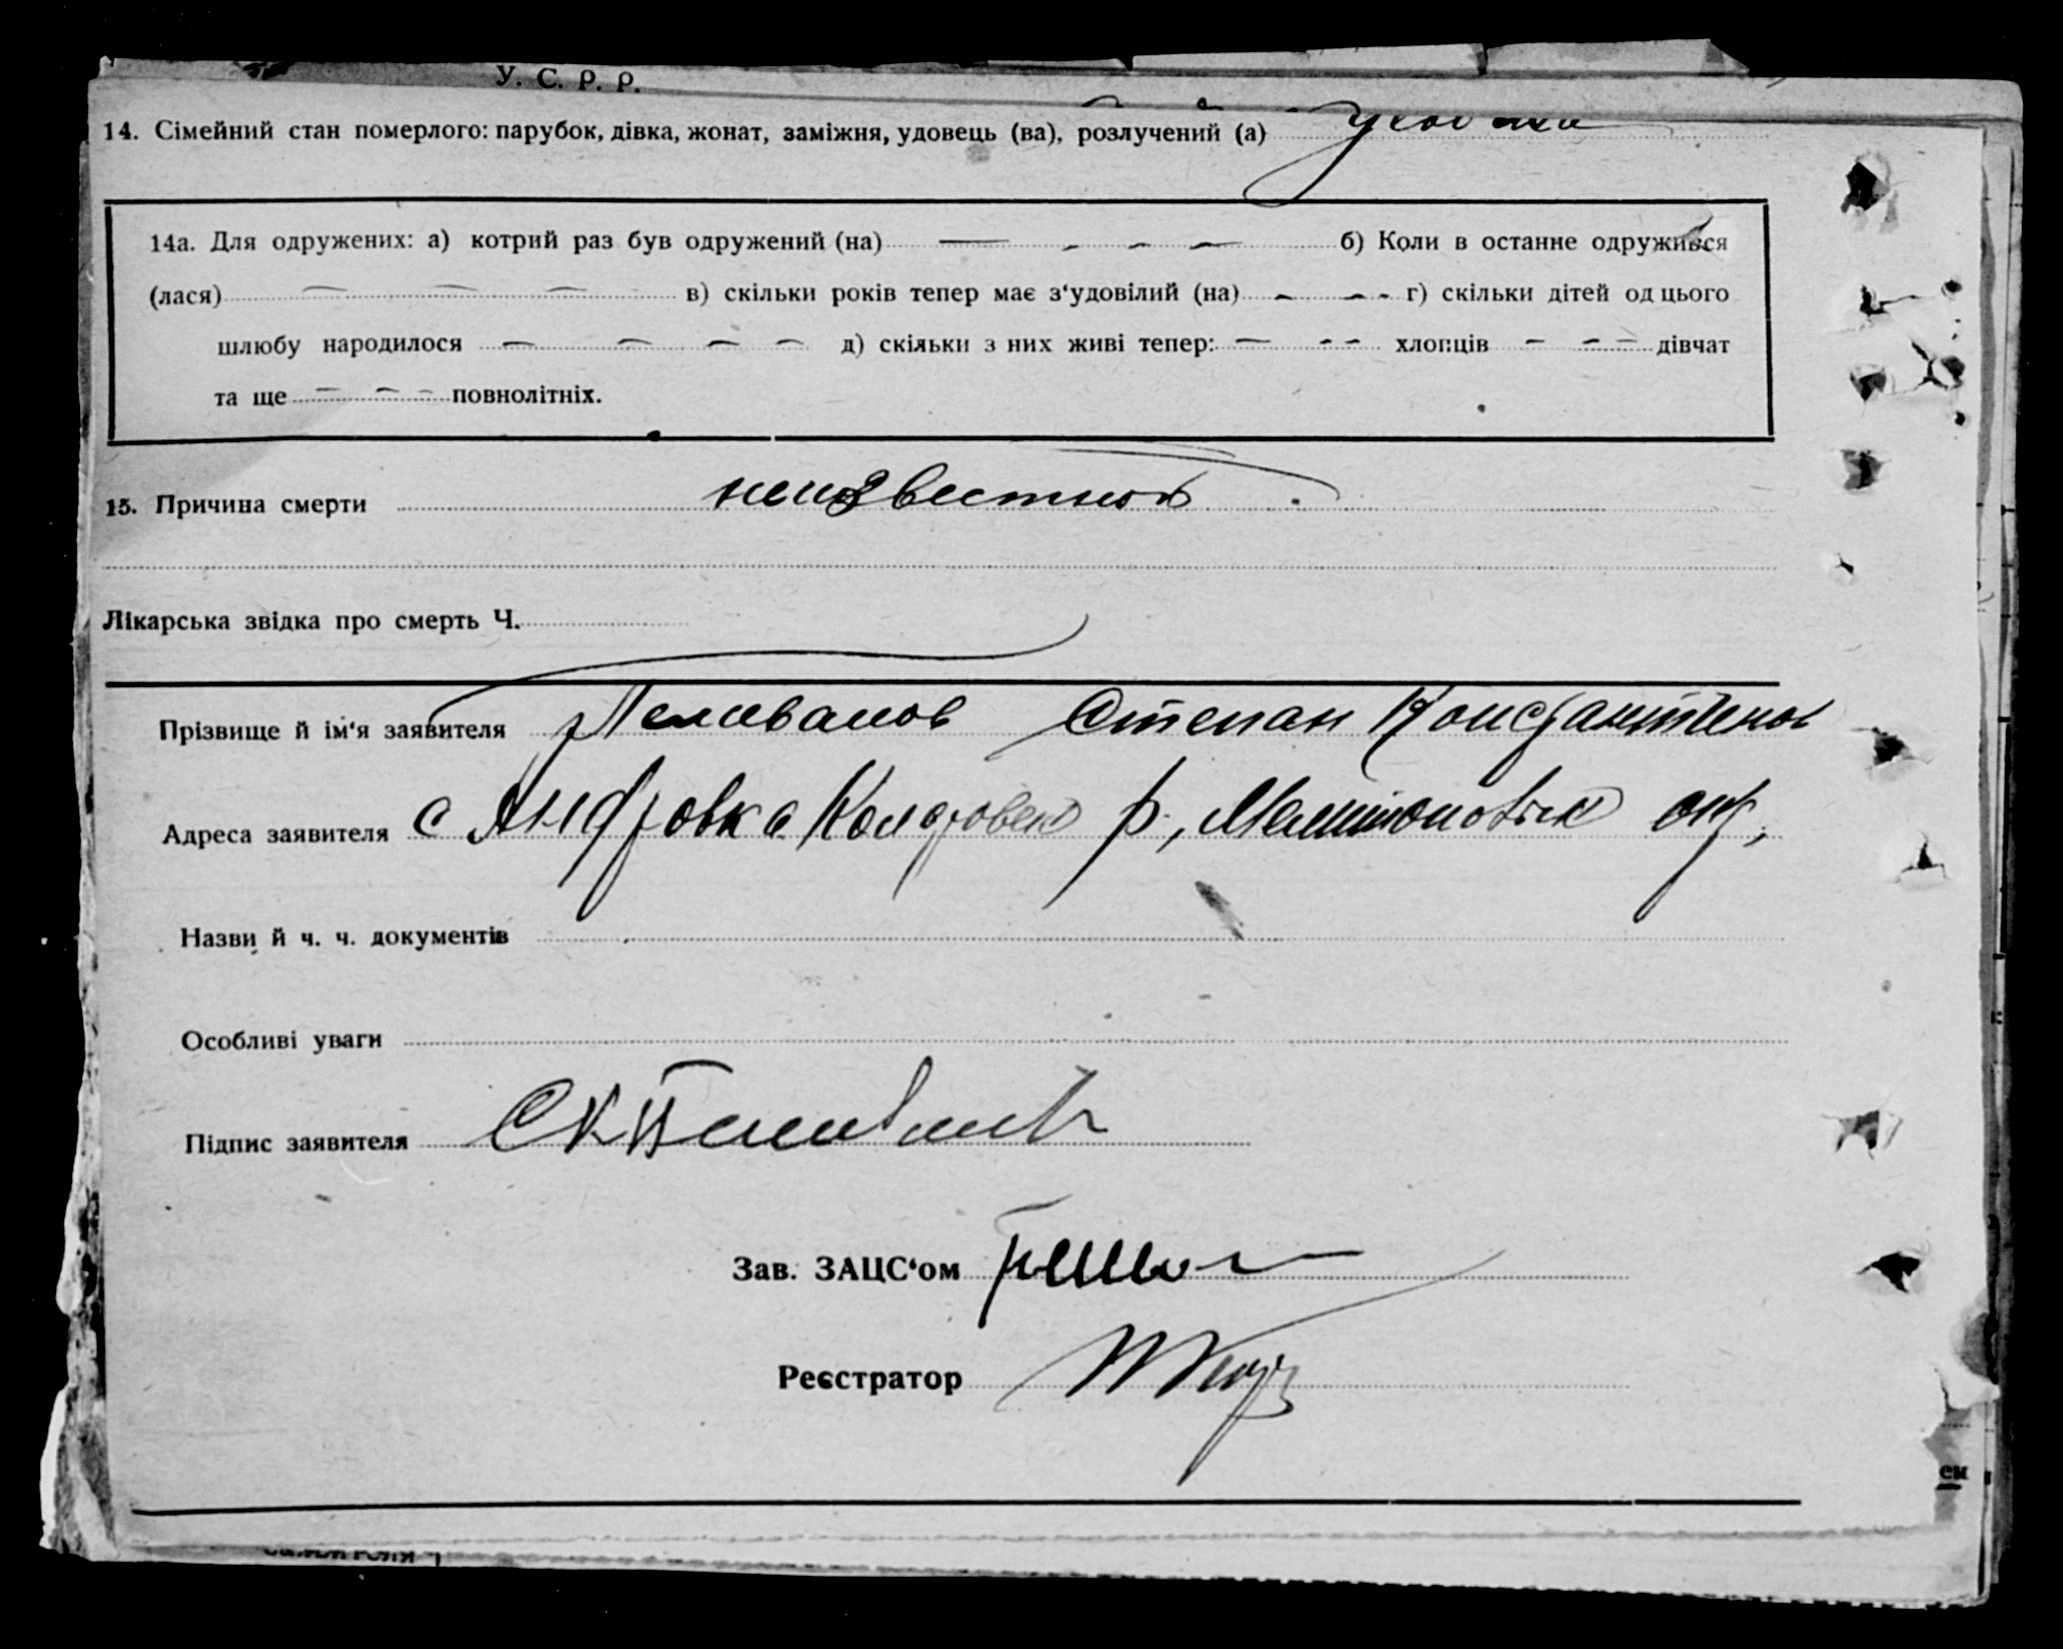 У. С. Р. Р.
14. Сімейний стан померлого: парубок, дівка, жонат, заміжня, удовець (ва), розлучений (а)
14а. Для одружених: а) котрий раз був одружений (на) — - - — б) Коли в останне одружився
(лася) — — — в) скільки років тепер має з'удовілий (на) - - - г) скільки дітей од цього
шлюбу народилося — — — — д) скільки з них живі тепер: — - - хлопців - - - дівчат
та ще — — - повнолітніх.
15. Причина смерти неизвестно
Лікарська звідка про смерть Ч.
Прізвище й ім'я заявителя Пеливанов Степан Константинов
Адреса заявителя с Андровка р, Мелитопольск окр,
Назви й ч. ч. документів
Особливі уваги
Підпис заявителя СКПеливанов
Зав. ЗАЦС'ом
Реєстратор